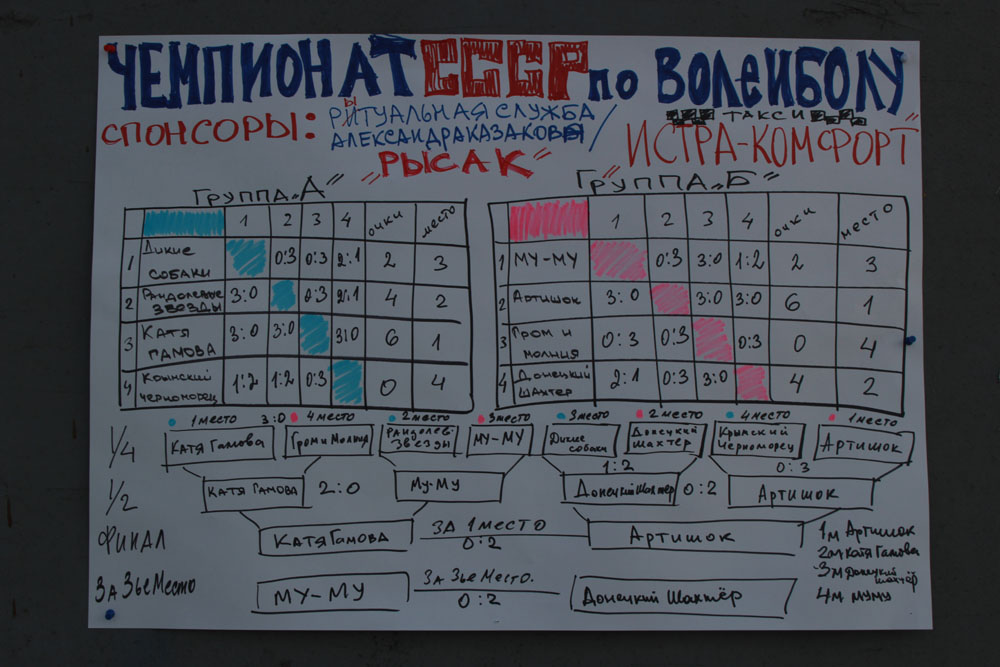 ЧЕМПИОНАТ СССР по ВОЛЕЙБОЛУ
СПОНСОРЫ: РЫТУАЛЬНАЯ СЛУЖБА / ТАКСИ
АЛЕКСАНДРА КАЗАКОВА "ИСТРА-КОМФОРТ"
"РЫСАК"
ГРУППА "А"
1 2 3 4 ОЧКИ МЕСТО
1 ДИКИЕ СОБАКИ 0:3 0:3 2:1 2 3
2 РАНДОЛЕВЫЕ ЗВЕЗДЫ 3:0 0:3 2:1 4 2
3 КАТЯ ГАМОВА 3:0 3:0 3:0 6 1
4 КРЫМСКИЙ ЧЕРНОМОРЕЦ 1:2 1:2 0:3 0 4
ГРУППА "Б"
1 2 3 4 ОЧКИ МЕСТО
1 МУ-МУ 0:3 3:0 1:2 2 3
2 АРТИШОК 3:0 3:0 3:0 6 1
3 ГРОМ И МОЛНИЯ 0:3 0:3 0:3 0 4
4 ДОНЕЦКИЙ ШАХТЕР 2:1 0:3 3:0 4 2
1 МЕСТО 3:0 4 МЕСТО 2 МЕСТО 3 МЕСТО 3 МЕСТО 2 МЕСТО 4 МЕСТО 1 МЕСТО
1/4 КАТЯ ГАМОВА ГРОМ И МОЛНИЯ РАНДОЛЕВ. ЗВЕЗДЫ МУ-МУ ДИКИЕ СОБАКИ ДОНЕЦКИЙ ШАХТЁР КРЫМСКИЙ ЧЕРНОМОРЕЦ АРТИШОК
1:2 0:3
1/2 КАТЯ ГАМОВА 2:0 МУ-МУ ДОНЕЦКИЙ ШАХТЁР 0:2 АРТИШОК
ФИНАЛ КАТЯ ГАМОВА ЗА 1 МЕСТО АРТИШОК
0:2
ЗА 3ЬЕ МЕСТО МУ-МУ ЗА 3ЬЕ МЕСТО. ДОНЕЦКИЙ ШАХТЁР
0:2
1м АРТИШОК
2м КАТЯ ГАМОВА
3м ДОНЕЦКИЙ ШАХТЁР
4м МУМУ